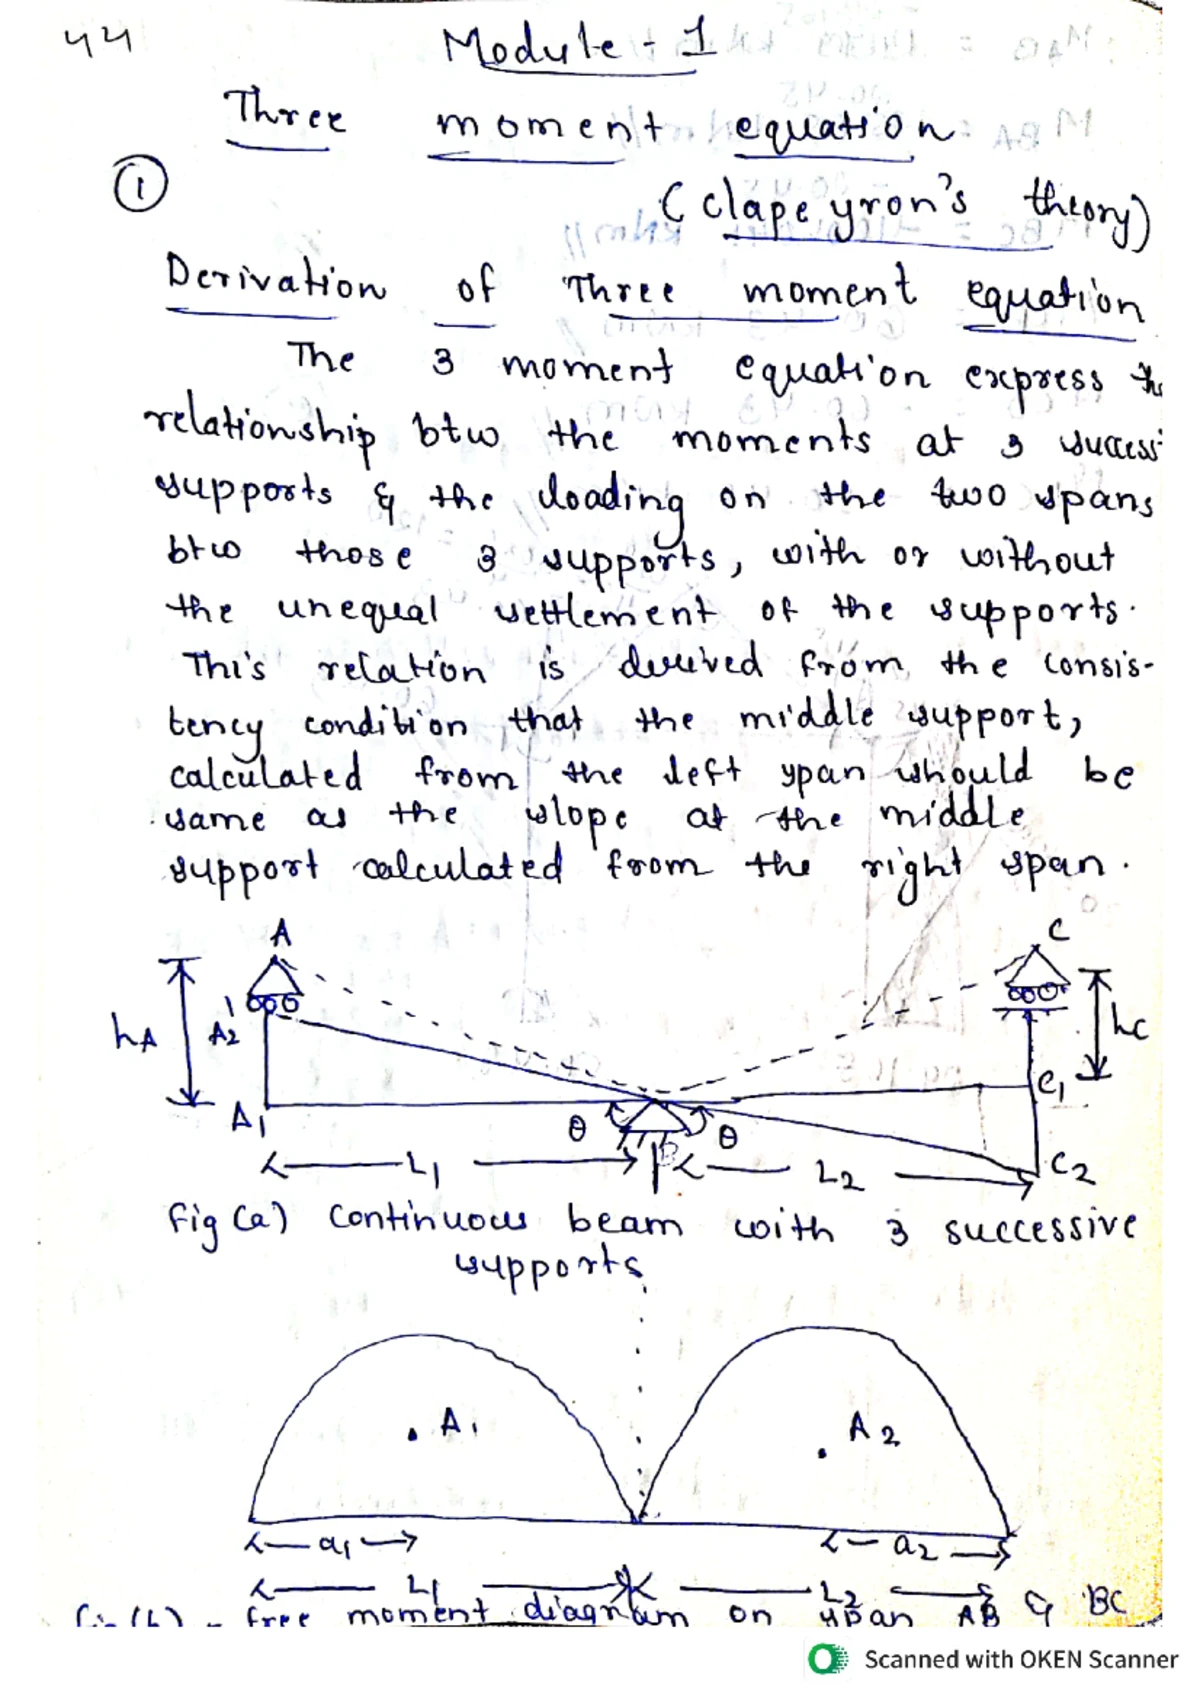 44
Module - 1
Three moment equation
①
(clapeyron's theory)
Derivation of Three moment equation
The 3 moment equation express the
relationship btw the moments at 3 success
supports & the loading on the two spans
btw those 3 supports, with or without
the unequal settlement of the supports.
This relation is derived from the consis-
tency condition that the middle support,
calculated from the left span should be
same as the slope at the middle
support calculated from the right span.
A
C
hA
A2'
hc
A1
θ
B
θ
C1
L1
L2
C2
Fig (a) Continuous beam with 3 successive
supports
A1
A2
a1
a2
L1
L2
Fig (b) - free moment diagram on span AB & BC
Scanned with OKEN Scanner